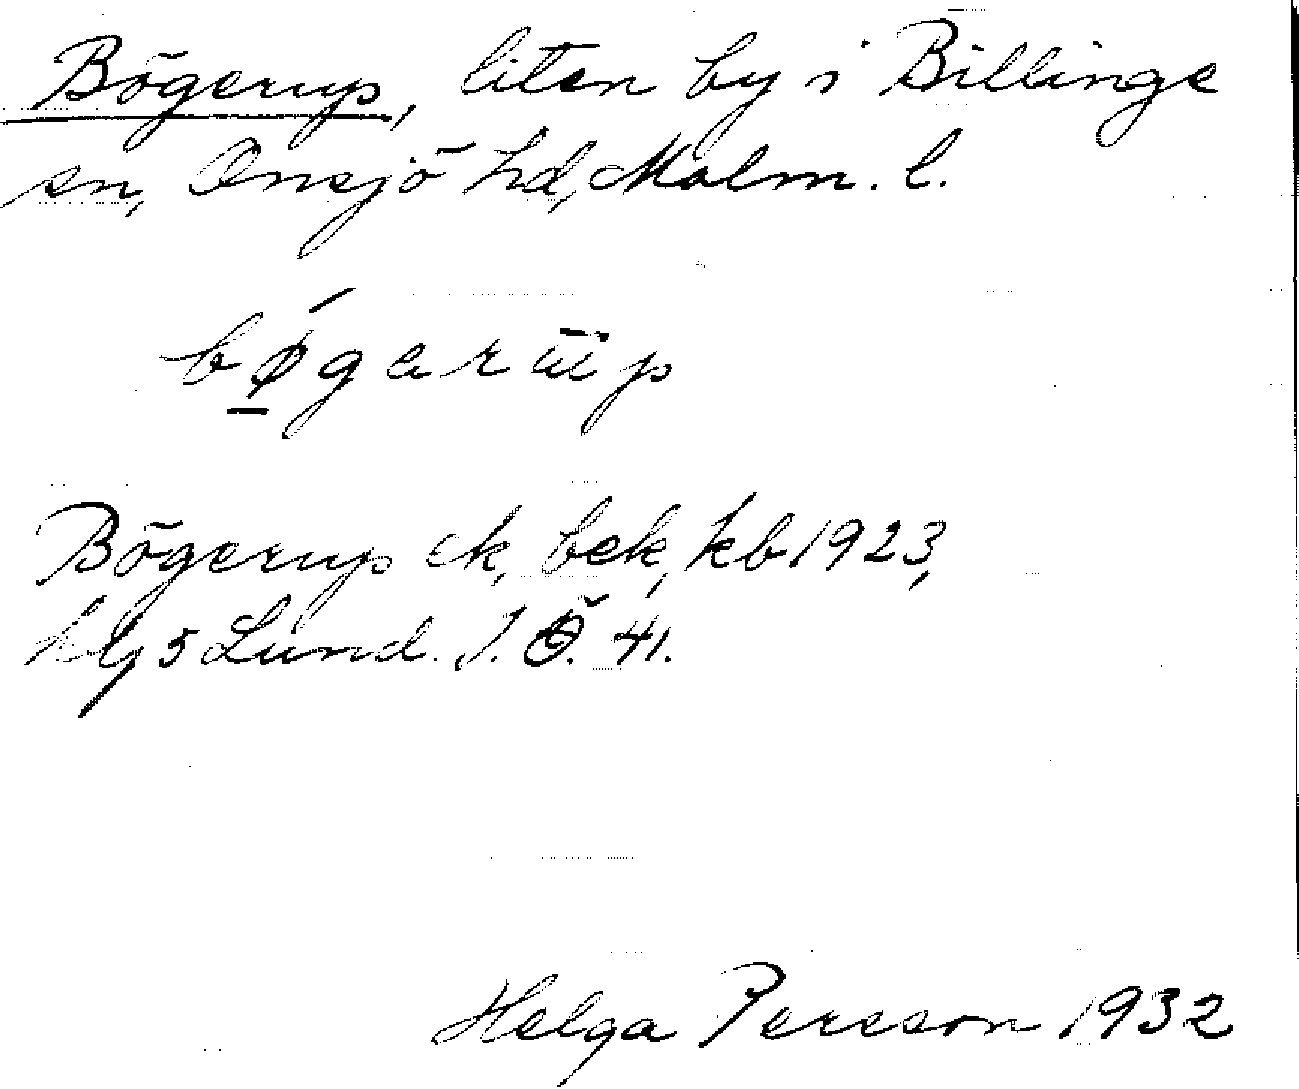 Bögerup, liten by i Billinge
sn, Onsjö hd, Malm. l.
bǿ̱garǖp
Bögerup ek, bek, kb 1923,
hlg 5 Lund. J. Ö. 41.
Helga Persson 1932